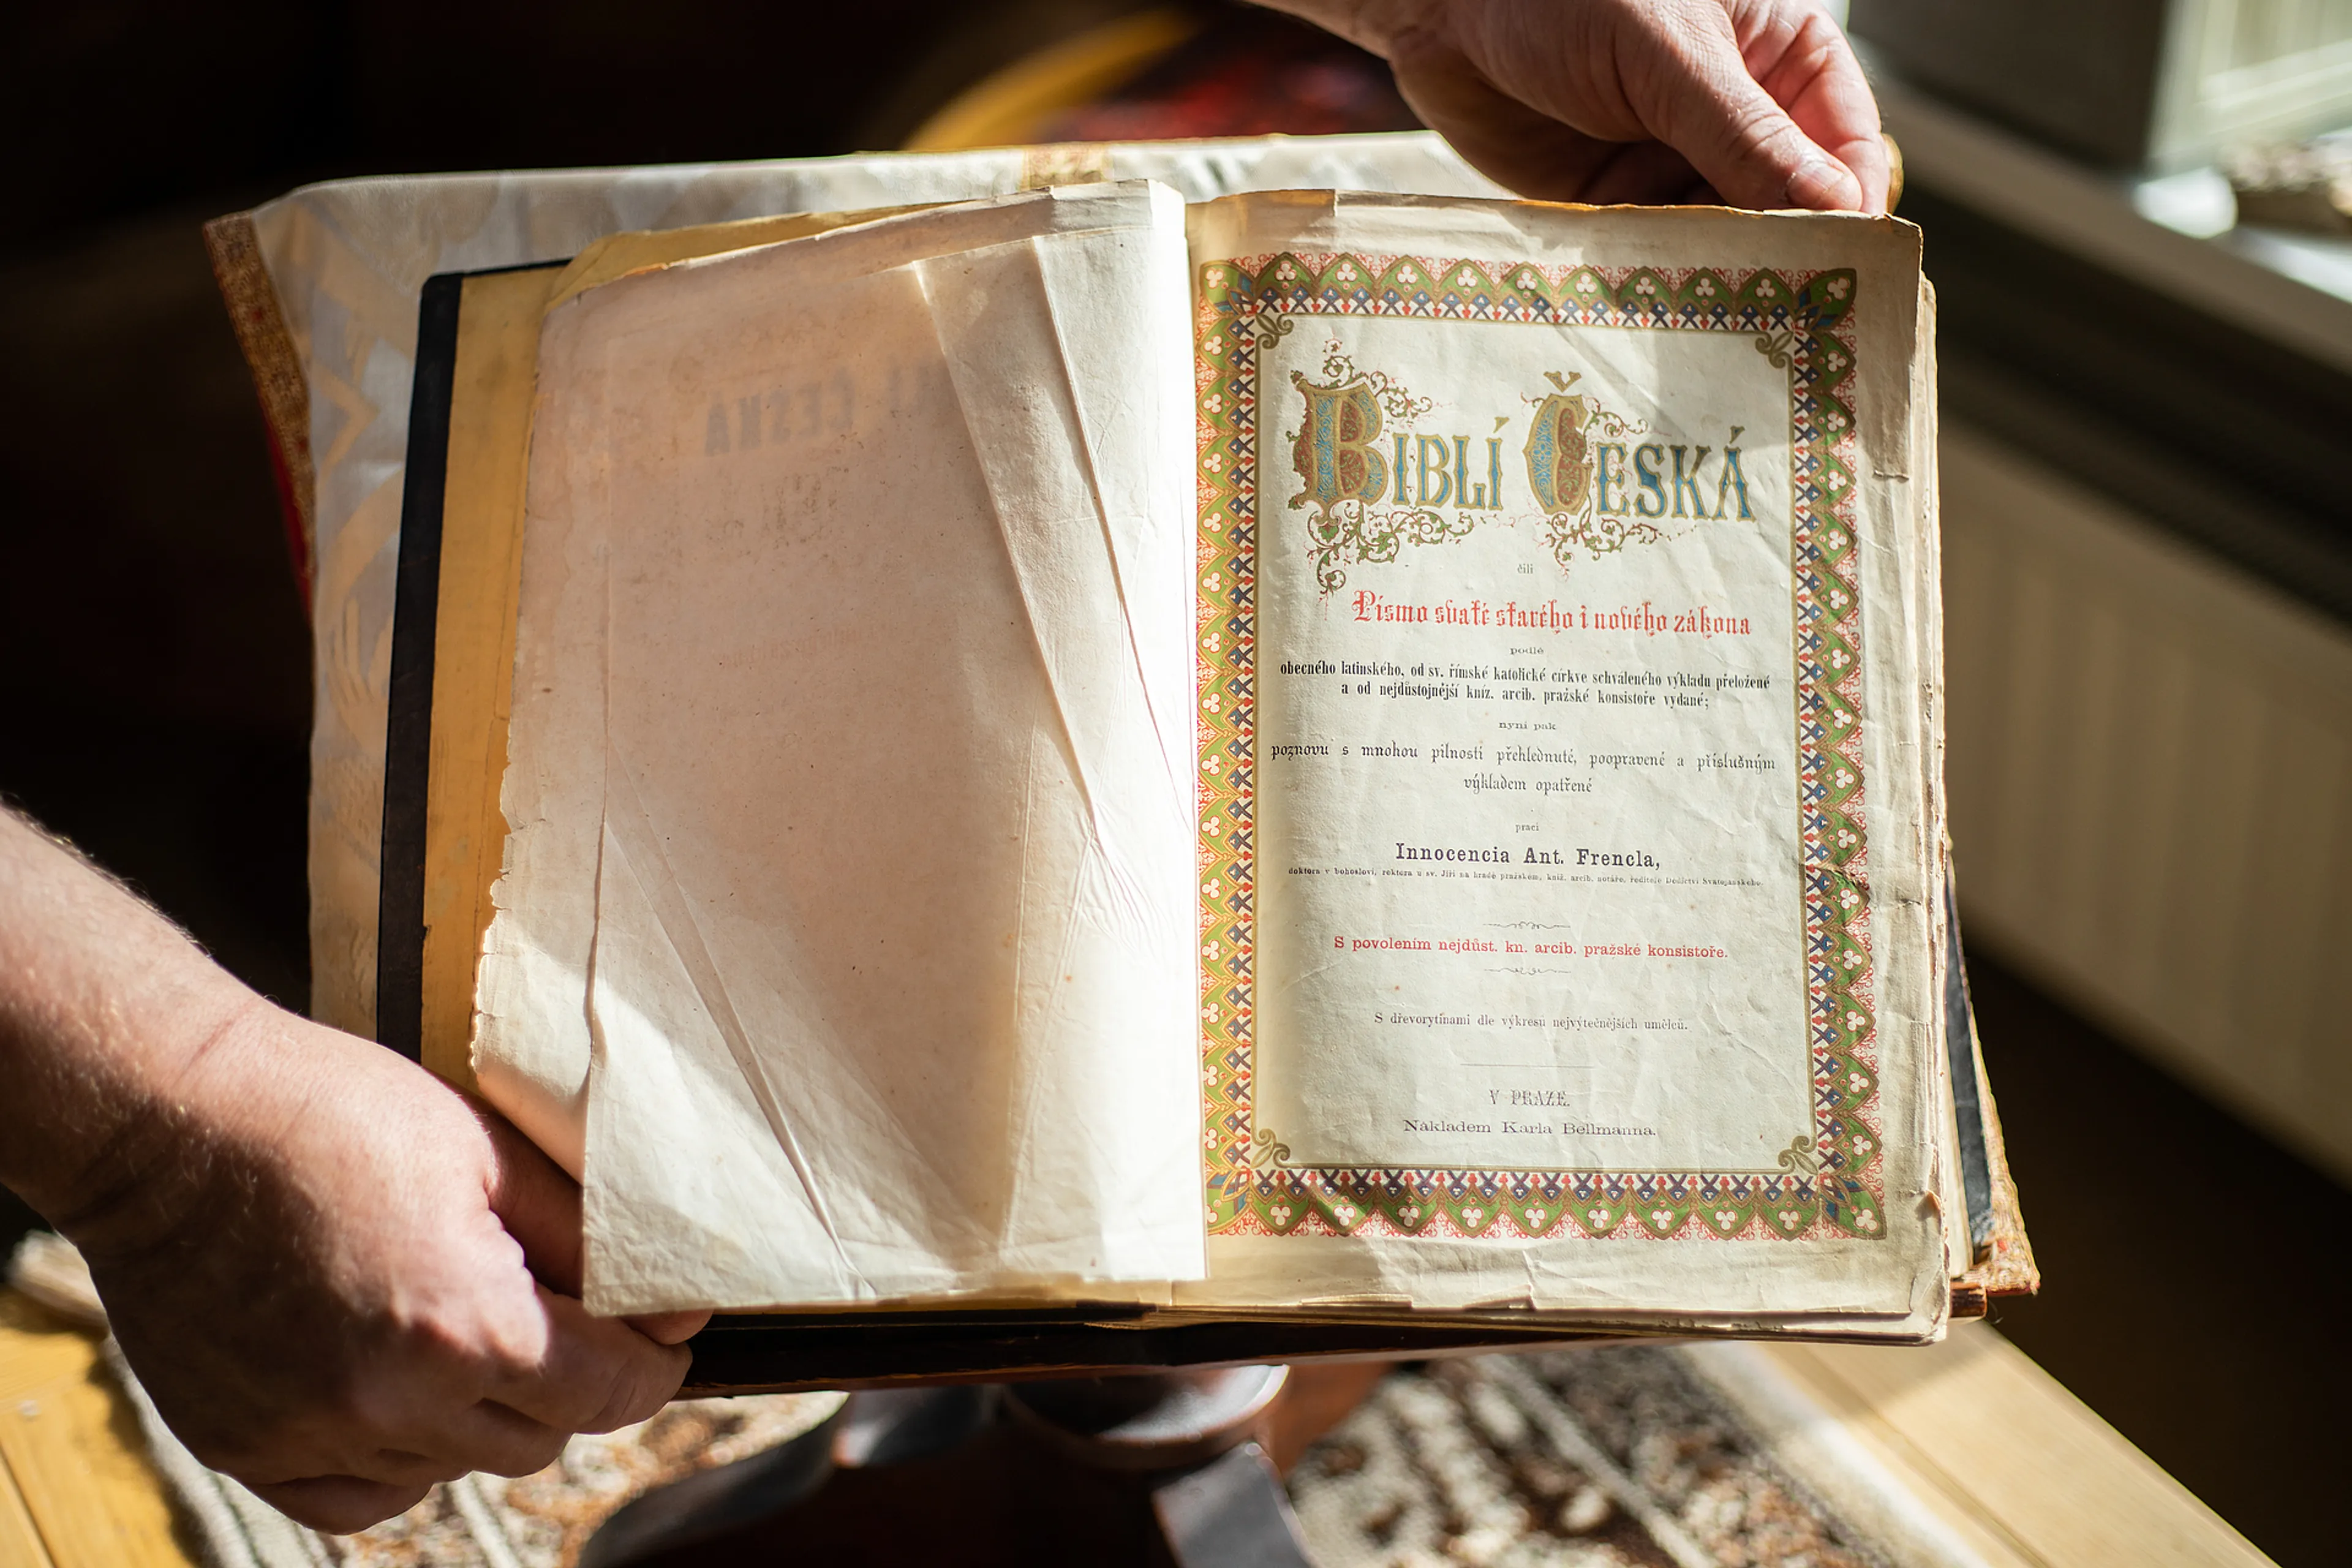 BIBLÍ ČESKÁ
čili
Písmo svaté starého i nového zákona
podlé
obecného latinského, od sv. římské katolické církve schváleného výkladu přeložené
a od nejdůstojnější kníž. arcib. pražské konsistoře vydané;
nyní pak
poznovu s mnohou pilností přehlednuté, poopravené a příslušným
výkladem opatřené
prací
Innocencia Ant. Frencla,
doktora v bohosloví, rektora u sv. Jiří na hradě pražském, kníž. arcib. notáře, ředitele Dědictví Svatojanského.
S povolením nejdůst. kn. arcib. pražské konsistoře.
S dřevorytinami dle výkresů nejvýtečnějších umělců.
V PRAZE.
Nákladem Karla Bellmanna.